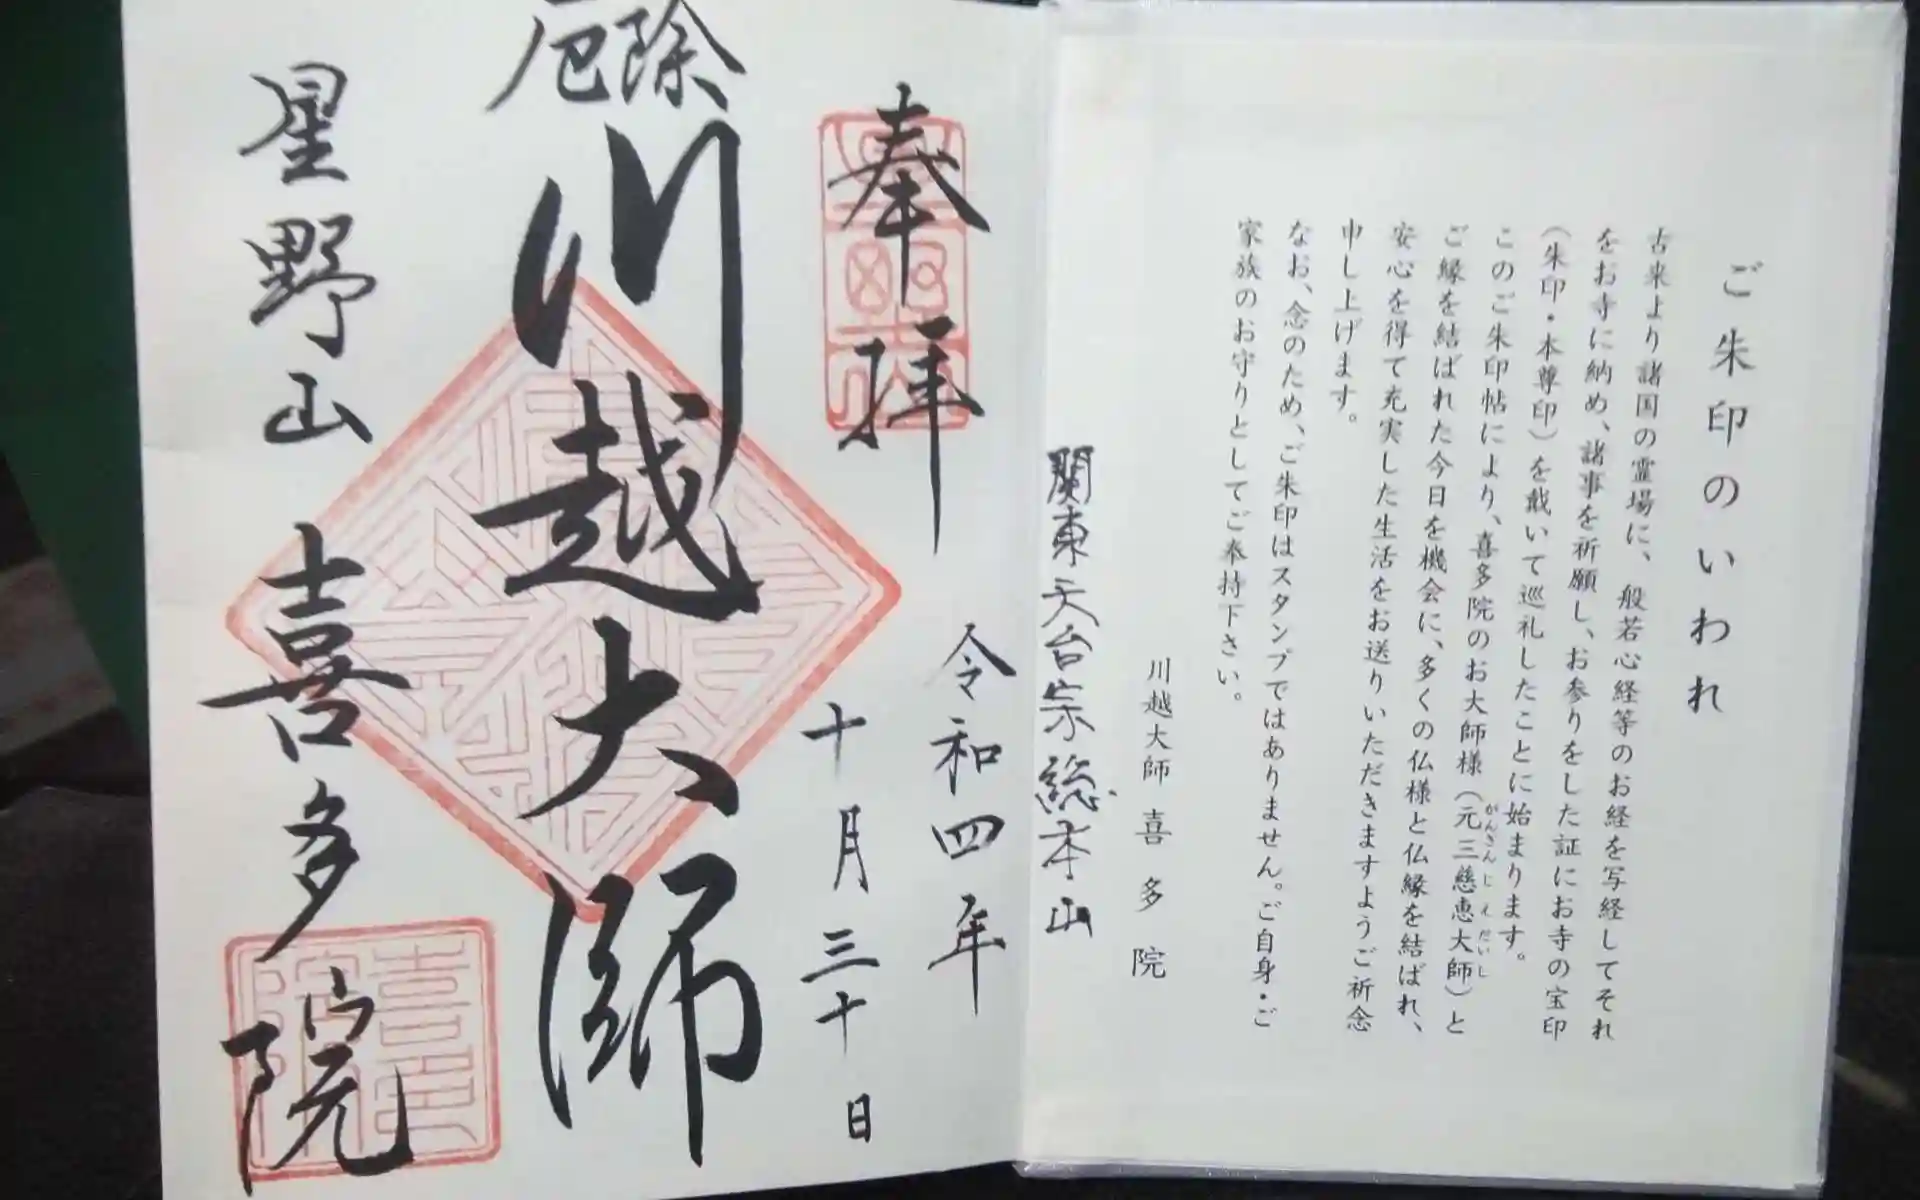 ご朱印のいわれ
古来より諸国の霊場に、般若心経等のお経を写経してそれ
をお寺に納め、諸事を祈願し、お参りをした証にお寺の宝印
(朱印・本尊印)を戴いて巡礼したことに始まります。
このご朱印帖により、喜多院のお大師様(元三慈恵大師)と
がんざんじえだいし
ご縁を結ばれた今日を機会に、多くの仏様と仏縁を結ばれ、
安心を得て充実した生活をお送りいただきますようご祈念
申し上げます。
なお、念のため、ご朱印はスタンプではありません。ご自身・ご
家族のお守りとしてご奉持下さい。
川越大師 喜多院
関東天台宗総本山
奉拝
令和四年
十月三十日
厄除
川越大師
星野山 喜多院